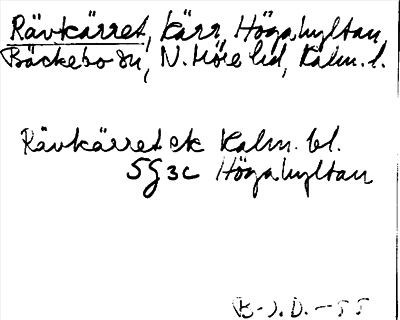 Rävkärret, kärr, Högahyltan,
Bäckebo sn, N. Möre hd, Kalm. l.
Rävkärret ek Kalm. bl.
5G3c Högahyltan
B-J. D. -55